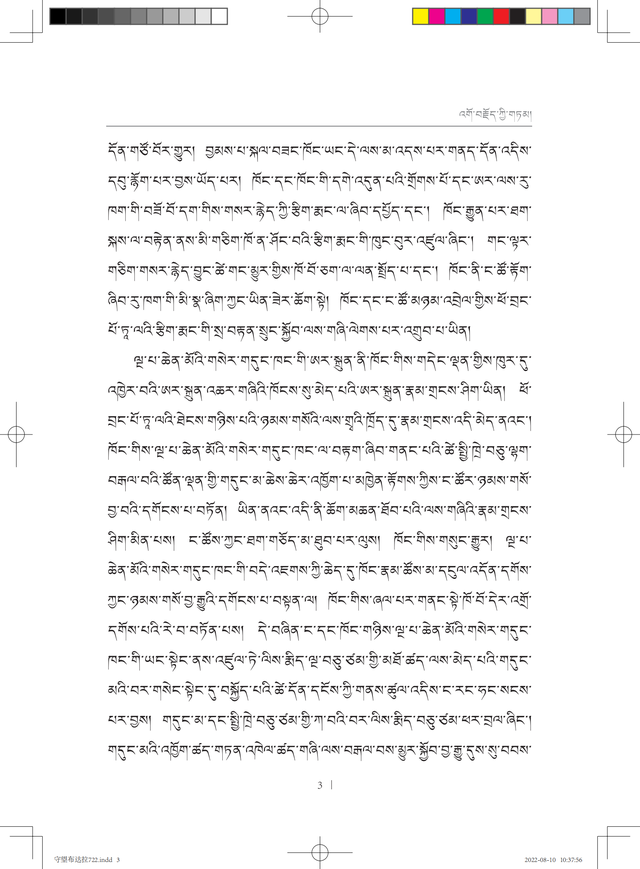 འགོ་བརྗོད་ཀྱི་གཏམ།
དོན་གཙོ་བོར་གྱུར། བྱམས་པ་སྐལ་བཟང་ཁོང་ཡང་དེ་ལས་མ་འདས་པར་གནད་དོན་འདིས་
དབུ་རྙོག་པར་བྱས་ཡོད་པར། ཁོང་དང་ཁོང་གི་དགེ་འདུན་པའི་གྲོགས་པོ་དང་ཨར་ལས་རུ་
ཁག་གི་བཟོ་བོ་དག་གིས་གསར་རྙེད་ཀྱི་རྩིག་རྨང་ལ་ཞིབ་དཔྱོད་དང་། ཁོང་རྒྱུན་པར་ཐག་
སྐས་ལ་བརྟེན་ནས་མི་གཅིག་ཁོ་ན་ཤོང་བའི་རྩིག་རྨང་གི་ཁུང་བུར་འཛུལ་ཞིང་། གང་ལྟར་
གཅིག་གསར་རྙེད་བྱུང་ཚེ་གང་མྱུར་གྱིས་ཁོ་བོ་ཅག་ལ་ལན་སྤྲོད་པ་དང་། ཁོང་ནི་ང་ཚོ་རྟོག་
ཞིབ་རུ་ཁག་གི་མི་སྣ་ཞིག་ཀྱང་ཡིན་ཟེར་ཆོག་སྟེ། ཁོང་དང་ང་ཚོ་མཉམ་འབྲེལ་གྱིས་ཕོ་བྲང་
པོ་ཏཱ་ལའི་རྩིག་རྨང་གི་སྲ་བརྟན་སྲུང་སྐྱོབ་ལས་གཞི་ལེགས་པར་འགྲུབ་པ་ཡིན།
ལྔ་པ་ཆེན་མོའི་གསེར་གདུང་ཁང་གི་ཨར་སྐྲུན་ནི་ཁོང་གིས་གདེང་ལྡན་གྱིས་ཁུར་དུ་
འཁྱེར་བའི་ཨར་སྐྲུན་འཆར་གཞིའི་ཁོངས་སུ་མེད་པའི་ཨར་སྐྲུན་རྣམ་གྲངས་ཤིག་ཡིན། ཕོ་
བྲང་པོ་ཏཱ་ལའི་ཐེངས་གཉིས་པའི་ཉམས་གསོའི་ལས་གྲྭའི་ཁྲོད་དུ་རྣམ་གྲངས་འདི་མེད་ནའང་།
ཁོང་གིས་ལྔ་པ་ཆེན་མོའི་གསེར་གདུང་ཁང་ལ་བརྟག་ཞིབ་གནང་པའི་ཚེ་སྤྱི་ཁྲེ་བཅུ་ལྷག་
བརྒལ་བའི་ཚོན་ལྡན་གྱི་གདུང་མ་ཆེས་ཆེར་འཁྱོག་པ་མཁྱེན་རྟོགས་ཀྱིས་ང་ཚོར་ཉམས་གསོ་
བྱ་བའི་དགོངས་པ་བཏོན། ཡིན་ནའང་འདི་ནི་ཆོག་མཆན་ཐོབ་པའི་ལས་གཞིའི་རྣམ་གྲངས་
ཤིག་མིན་པས། ང་ཚོས་ཀྱང་ཐག་གཅོད་མ་ཐུབ་པར་ལུས། ཁོང་གིས་གསུང་རྒྱུར། ལྔ་པ་
ཆེན་མོའི་གསེར་གདུང་ཁང་གི་བདེ་འཇགས་ཀྱི་ཆེད་དུ་ཁོང་རྣམ་ཚོས་མ་དངུལ་འདོན་དགོས་
ཀྱང་ཉམས་གསོ་བྱ་རྒྱུའི་དགོངས་པ་བསྟན་ལ། ཁོང་གིས་ཞལ་པར་གནང་སྟེ་ཁོ་བོ་དེར་འགྲོ་
དགོས་པའི་རེ་བ་བཏོན་པས། དེ་བཞིན་ང་དང་ཁོང་གཉིས་ལྔ་པ་ཆེན་མོའི་གསེར་གདུང་
ཁང་གི་ཡང་སྟེང་ནས་འཛུལ་ཏེ་ལིས་རྨིད་ལྔ་བཅུ་ཙམ་གྱི་མཐོ་ཚད་ལས་མེད་པའི་གདུང་
མའི་བར་གསེང་སྟེང་དུ་བསྐྱོད་པའི་ཚེ་དོན་དངོས་ཀྱི་གནས་ཚུལ་འདིས་ང་རང་ཧང་སངས་
པར་བྱས། གདུང་མ་དང་སྤྱི་ཁྲེ་བཅུ་ཙམ་གྱི་ཀ་བའི་བར་ལིས་རྨིད་བཅུ་ཙམ་ཕར་བྲལ་ཞིང་།
གདུང་མའི་འཁྱོག་ཚད་གཏན་འཁེལ་ཚད་གཞི་ལས་བརྒལ་བས་མྱུར་སྐྱོབ་བྱ་རྒྱུ་དུས་སུ་བབས་
3
守望布达拉722.indd 3
2022-08-10 10:37:56